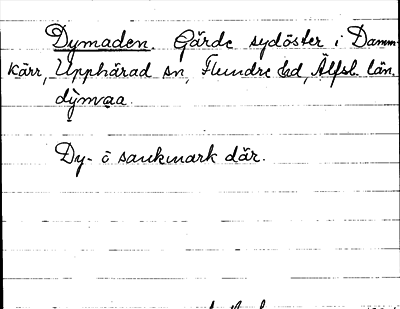 Dymaden. Gärde sydöster i Damm-
kärr, Upphärad sn, Flundre hd, Älfsb. län.
dỳmvaa.
Dy- ō sankmark där.